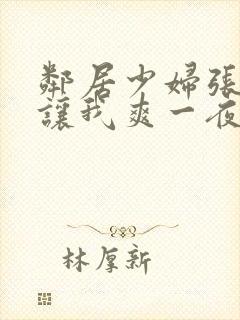 鄰居少婦張
讓我爽一夜
林厚新